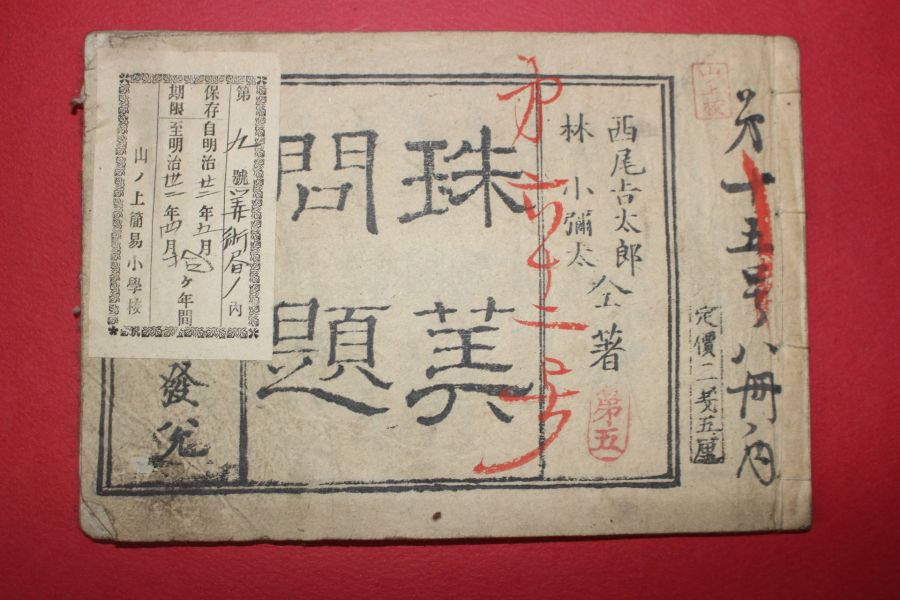 第十五号八冊ノ内
定價二戔五厘
西尾占太郎
林 小彌太
仝著
第五
珠算
問題
發兌
第九號算術書ノ内
保存自明治廿二年五月
期限至明治廿三年四月
ヶ年間
山ノ上簡易小學校